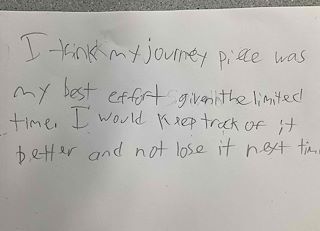 I think my journey piece was
my best effort given the limited
time. I would keep track of it
better and not lose it next tim